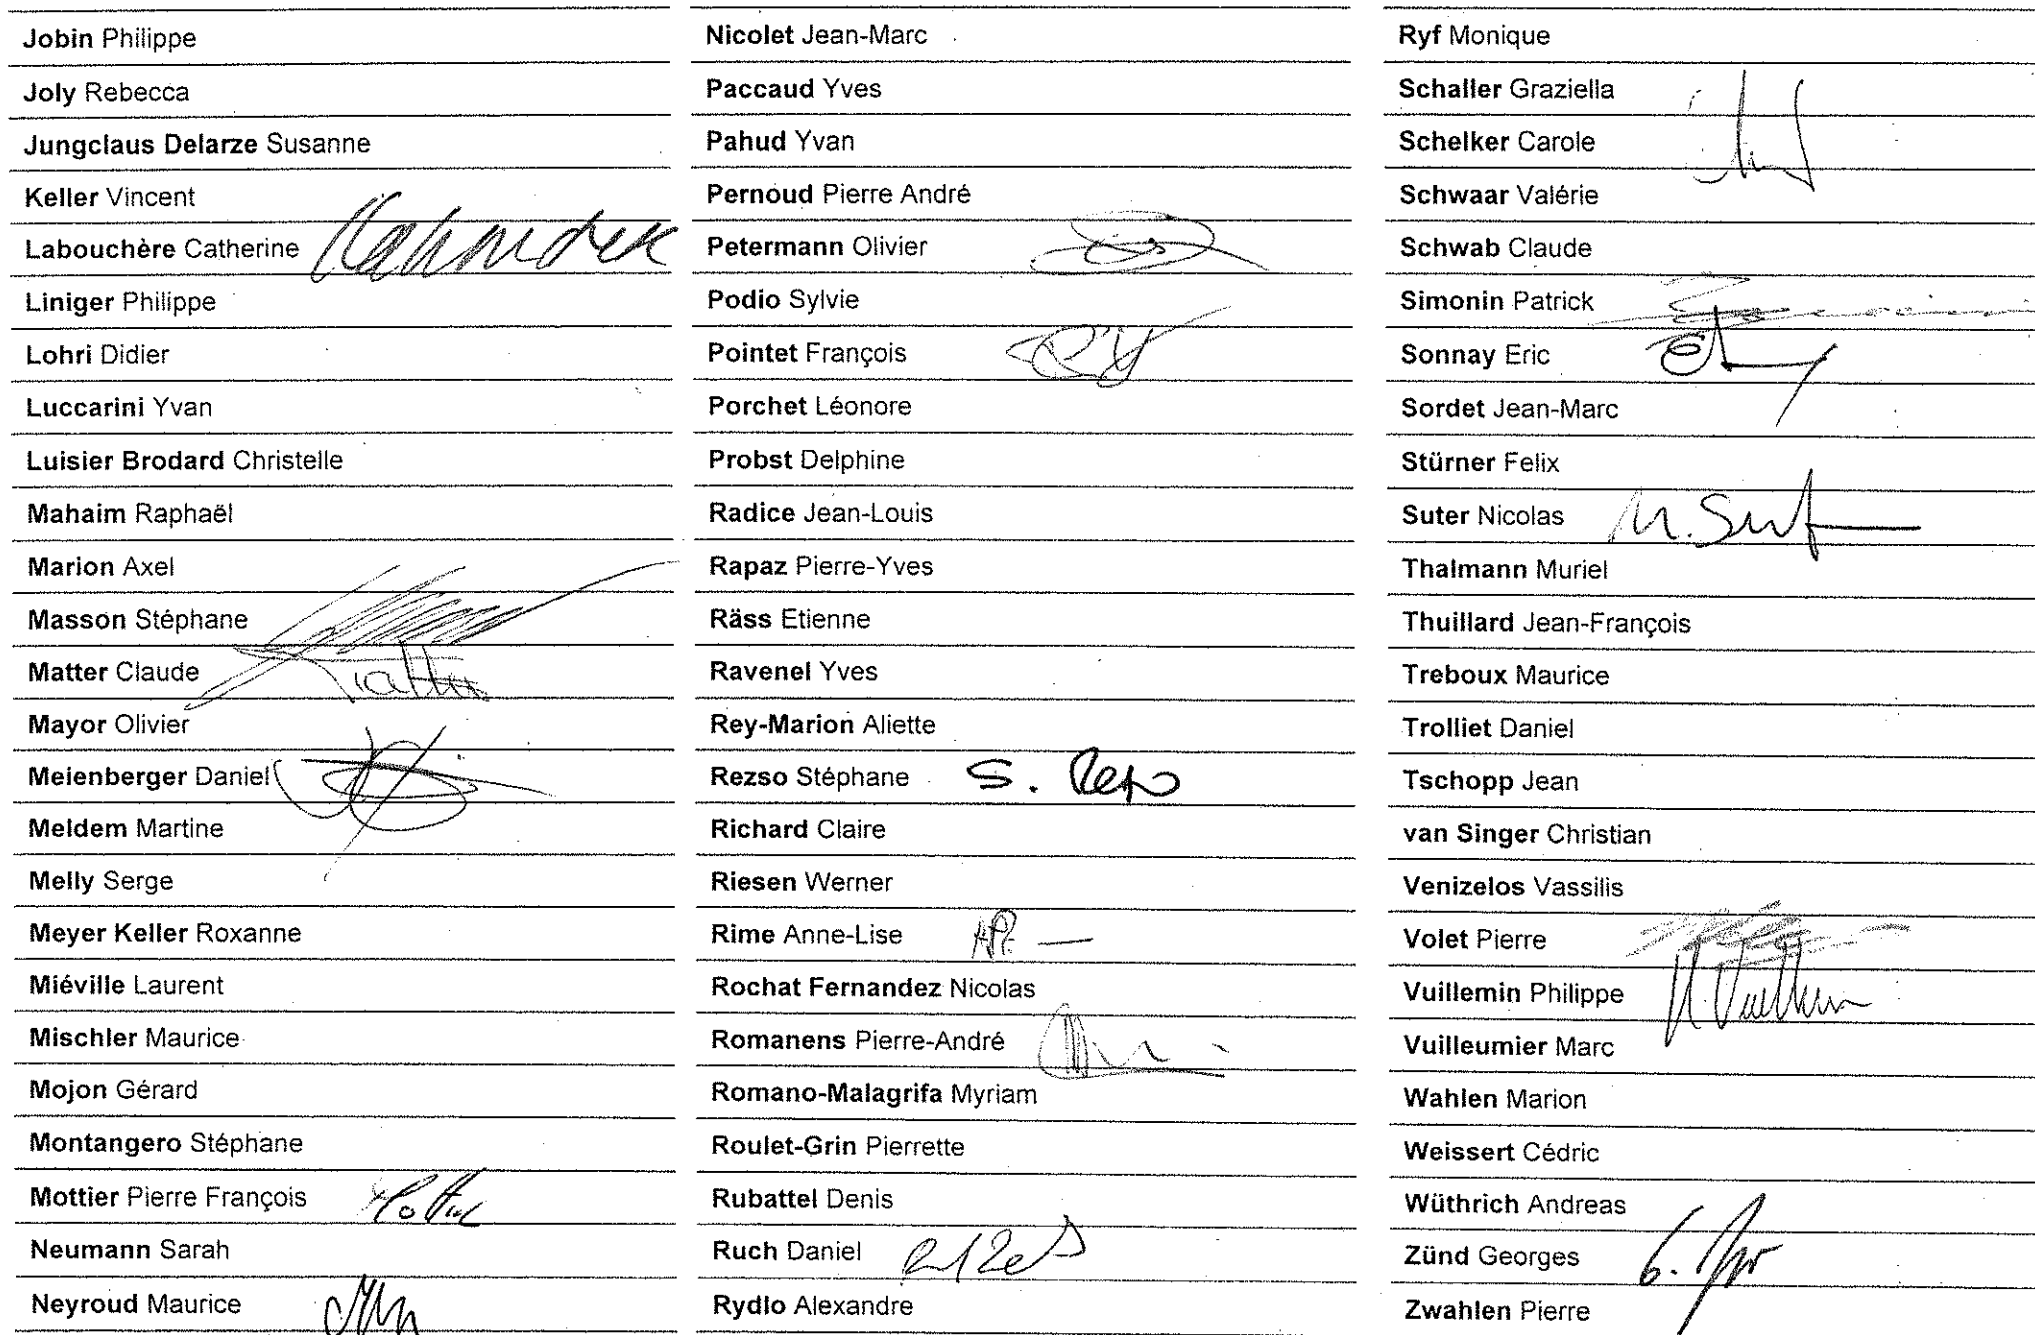 Jobin Philippe
Joly Rebecca
Jungclaus Delarze Susanne
Keller Vincent
Labouchère Catherine
Liniger Philippe
Lohri Didier
Luccarini Yvan
Luisier Brodard Christelle
Mahaim Raphaël
Marion Axel
Masson Stéphane
Matter Claude
Mayor Olivier
Meienberger Daniel
Meldem Martine
Melly Serge
Meyer Keller Roxanne
Miéville Laurent
Mischler Maurice
Mojon Gérard
Montangero Stéphane
Mottier Pierre François
Neumann Sarah
Neyroud Maurice
Nicolet Jean-Marc
Paccaud Yves
Pahud Yvan
Pernoud Pierre André
Petermann Olivier
Podio Sylvie
Pointet François
Porchet Léonore
Probst Delphine
Radice Jean-Louis
Rapaz Pierre-Yves
Räss Etienne
Ravenel Yves
Rey-Marion Aliette
Rezso Stéphane S. Rezso
Richard Claire
Riesen Werner
Rime Anne-Lise
Rochat Fernandez Nicolas
Romanens Pierre-André
Romano-Malagrifa Myriam
Roulet-Grin Pierrette
Rubattel Denis
Ruch Daniel
Rydlo Alexandre
Ryf Monique
Schaller Graziella
Schelker Carole
Schwaar Valérie
Schwab Claude
Simonin Patrick
Sonnay Eric
Sordet Jean-Marc
Stürner Felix
Suter Nicolas N. Suter
Thalmann Muriel
Thuillard Jean-François
Treboux Maurice
Trolliet Daniel
Tschopp Jean
van Singer Christian
Venizelos Vassilis
Volet Pierre
Vuillemin Philippe
Vuilleumier Marc
Wahlen Marion
Weissert Cédric
Wüthrich Andreas
Zünd Georges
Zwahlen Pierre